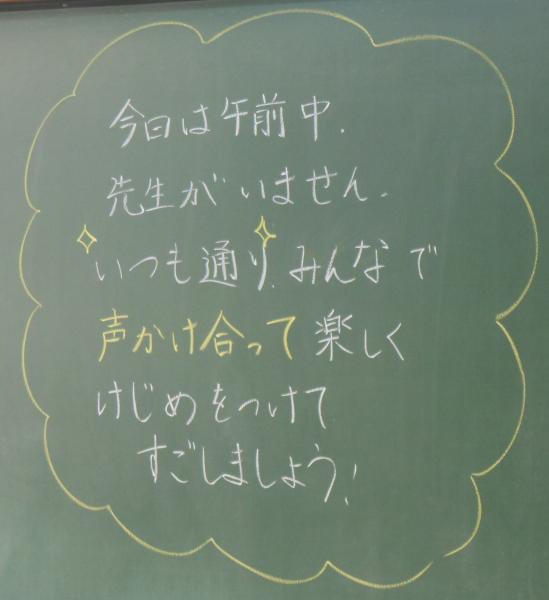 今日は午前中、
先生がいません。
いつも通り、みんなで
声かけ合って楽しく
けじめをつけて
すごしましょう!